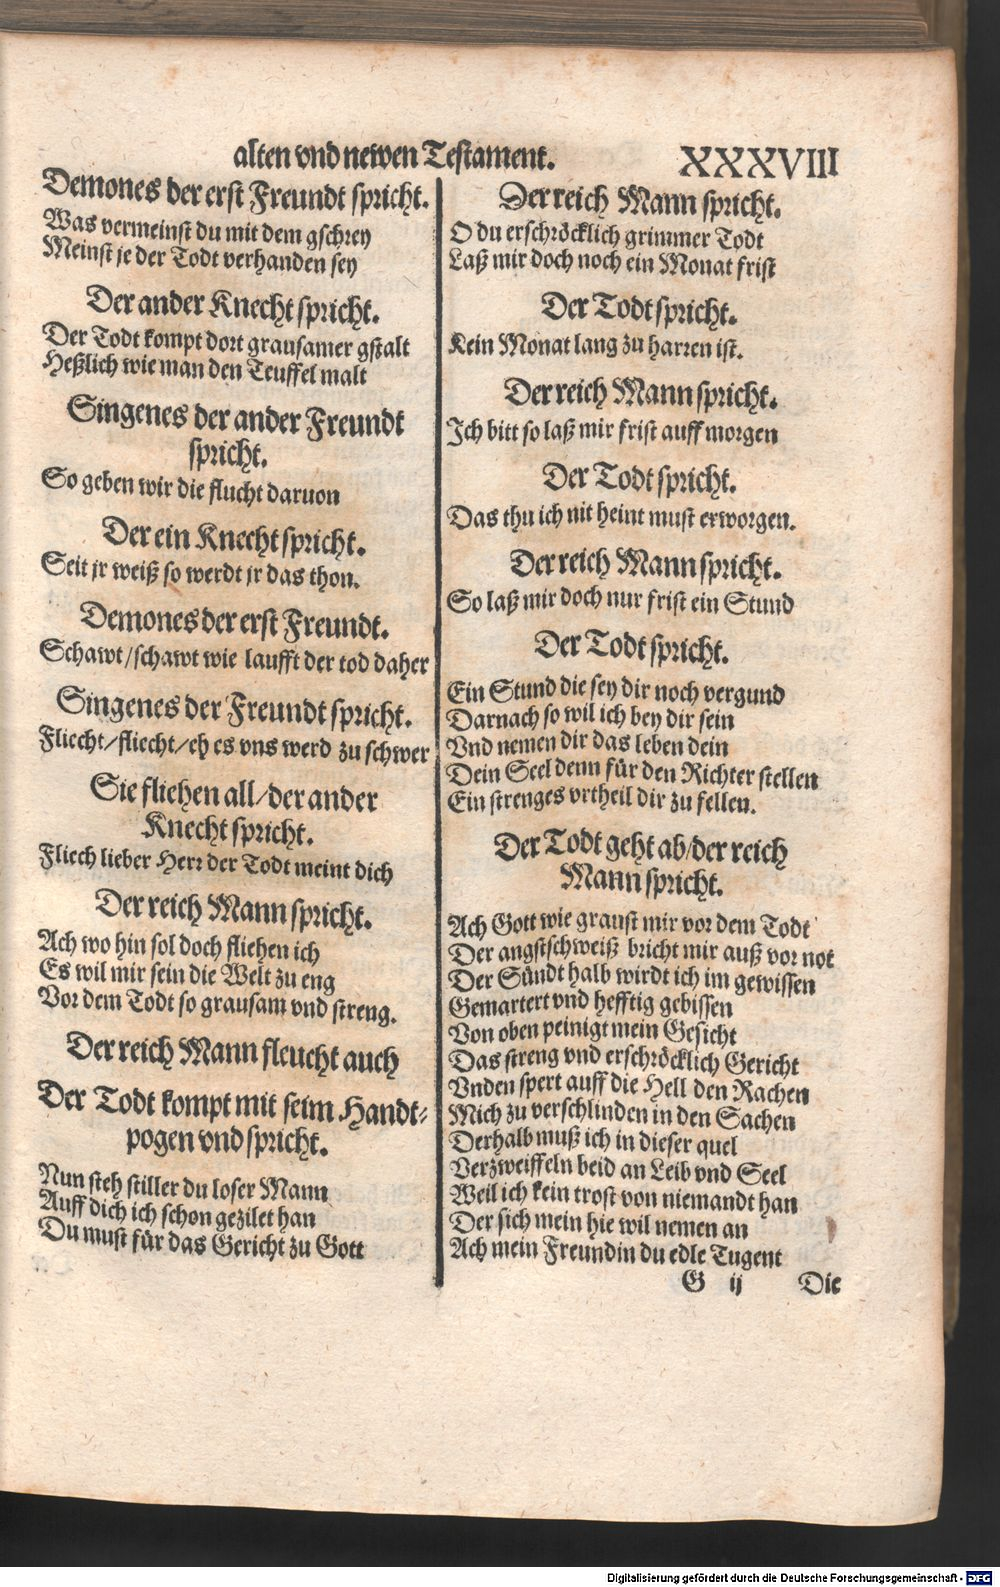 alten vnd newen Testament. XXXVIII
Demones der erst Freundt spricht.
Was vermeinst du mit dem gschrey
Meinst je der Todt verhanden sey
Der ander Knecht spricht.
Der Todt kompt dort grausamer gstalt
Heßlich wie man den Teuffel malt
Singenes der ander Freundt
spricht.
So geben wir die flucht daruon
Der ein Knecht spricht.
Seit jr weiß so werdt jr das thon.
Demones der erst Freundt.
Schawt/schawt wie laufft der tod daher
Singenes der Freundt spricht.
Fliecht/fliecht/eh es vns werd zu schwer
Sie fliehen all/der ander
Knecht spricht.
Fliech lieber Herr der Todt meint dich
Der reich Mann spricht.
Ach wo hin sol doch fliehen ich
Es wil mir sein die Welt zu eng
Vor dem Todt so grausam vnd streng.
Der reich Mann fleucht auch
Der Todt kompt mit seim Handt-
pogen vnd spricht.
Nun steh stiller du loser Mann
Auff dich ich schon gezilet han
Du must für das Gericht zu Gott
Der reich Mann spricht.
O du erschröcklich grimmer Todt
Laß mir doch noch ein Monat frist
Der Todt spricht.
Kein Monat lang zu harren ist.
Der reich Mann spricht.
Ich bitt so laß mir frist auff morgen
Der Todt spricht.
Das thu ich nit heint must erworgen.
Der reich Mann spricht.
So laß mir doch nur frist ein Stund
Der Todt spricht.
Ein Stund die sey dir noch vergund
Darnach so wil ich bey dir sein
Vnd nemen dir das leben dein
Dein Seel denn für den Richter stellen
Ein strenges vrtheil dir zu fellen.
Der Todt geht ab/der reich
Mann spricht.
Ach Gott wie graust mir vor dem Todt
Der angstschweiß bricht mir auß vor not
Der Sündt halb wirdt ich im gewissen
Gemartert vnd hefftig gebissen
Von oben peinigt mein Gesicht
Das streng vnd erschröcklich Gericht
Vnden spert auff die Hell den Rachen
Mich zu verschlinden in den Sachen
Derhalb muß ich in dieser quel
Verzweiffeln beid an Leib vnd Seel
Weil ich kein trost von niemandt han
Der sich mein hie wil nemen an
Ach mein Freundin du edle Tugent
G ij Die
Digitalisierung gefördert durch die Deutsche Forschungsgemeinschaft - DFG